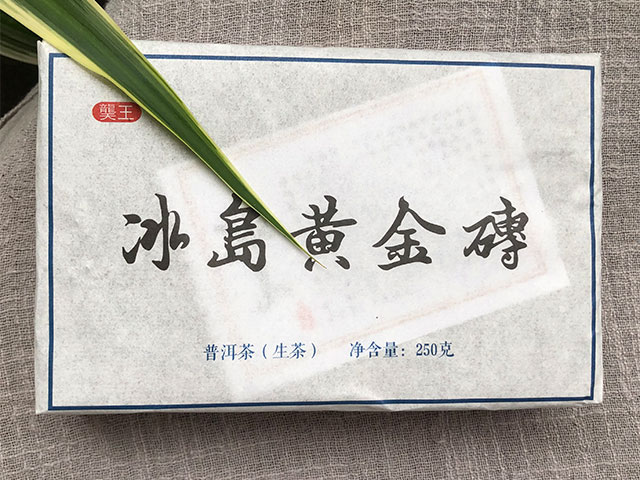 龑王
冰島黄金磚
普洱茶（生茶） 净含量：250克